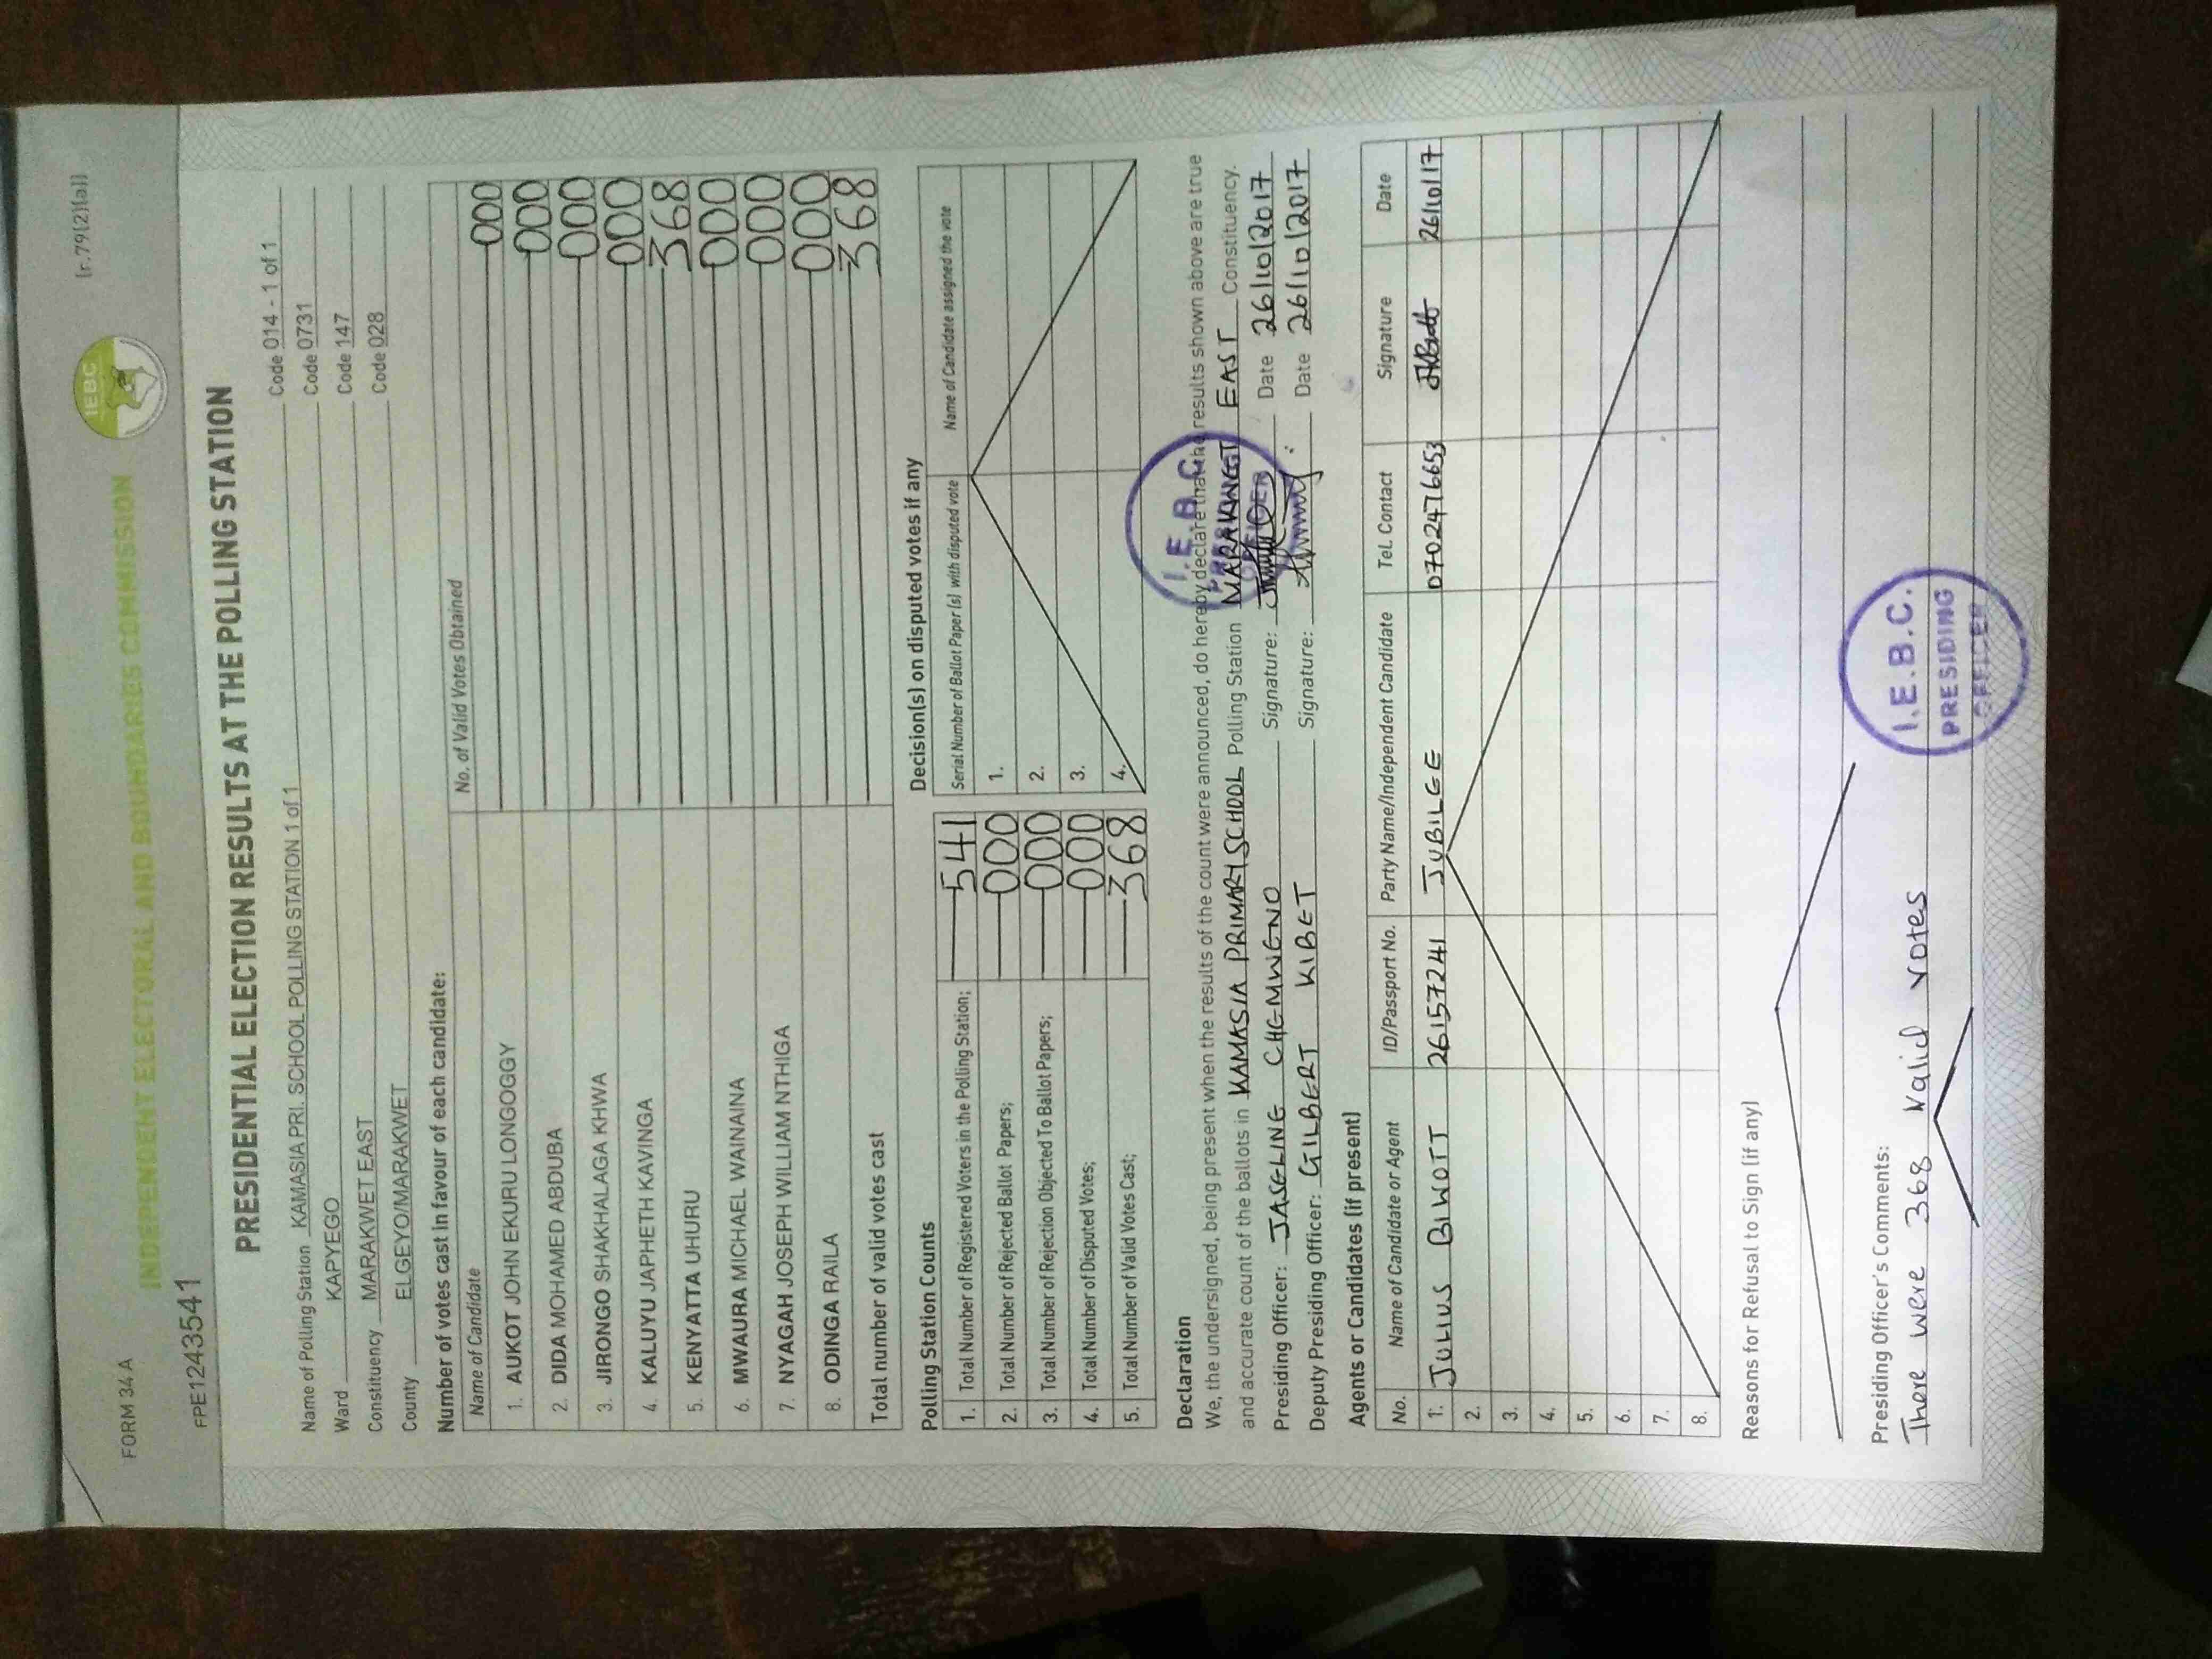 FORM 34 A
[r.79(2)(a)]
IEBC
INDEPENDENT ELECTORAL AND BOUNDARIES COMMISSION
FPE1243541
PRESIDENTIAL ELECTION RESULTS AT THE POLLING STATION
Name of Polling Station KAMASIA PRI. SCHOOL POLLING STATION 1 of 1 Code 014 - 1 of 1
Ward KAPYEGO Code 0731
Constituency MARAKWET EAST Code 147
County ELGEYO/MARAKWET Code 028
Number of votes cast in favour of each candidate:
Name of Candidate No. of Valid Votes Obtained
1. AUKOT JOHN EKURU LONGOGGY 000
2. DIDA MOHAMED ABDUBA 000
3. JIRONGO SHAKHALAGA KHWA 000
4. KALUYU JAPHETH KAVINGA 000
5. KENYATTA UHURU 368
6. MWAURA MICHAEL WAINAINA 000
7. NYAGAH JOSEPH WILLIAM NTHIGA 000
8. ODINGA RAILA 000
Total number of valid votes cast 368
Polling Station Counts
1. Total Number of Registered Voters in the Polling Station; 541
2. Total Number of Rejected Ballot Papers; 000
3. Total Number of Rejection Objected To Ballot Papers; 000
4. Total Number of Disputed Votes; 000
5. Total Number of Valid Votes Cast; 368
Decision(s) on disputed votes if any
Serial Number of Ballot Paper (s) with disputed vote Name of Candidate assigned the vote
1.
2.
3.
4.
Declaration
We, the undersigned, being present when the results of the count were announced, do hereby declare that the results shown above are true
and accurate count of the ballots in KAMASIA PRIMARY SCHOOL Polling Station MARAKWET EAST Constituency.
Presiding Officer: JASELINE CHEMWENO Signature: Date 26/10/2017
Deputy Presiding Officer: GILBERT KIBET Signature: Date 26/10/2017
I.E.B.C.
PRESIDING
OFFICER
Agents or Candidates (if present)
No. Name of Candidate or Agent ID/Passport No. Party Name/Independent Candidate Tel. Contact Signature Date
1. JULIUS BIWOTT 26157241 JUBILEE 0702476653 26/10/17
2.
3.
4.
5.
6.
7.
8.
Reasons for Refusal to Sign (if any)
Presiding Officer's Comments:
There were 368 valid votes
I.E.B.C.
PRESIDING
OFFICER